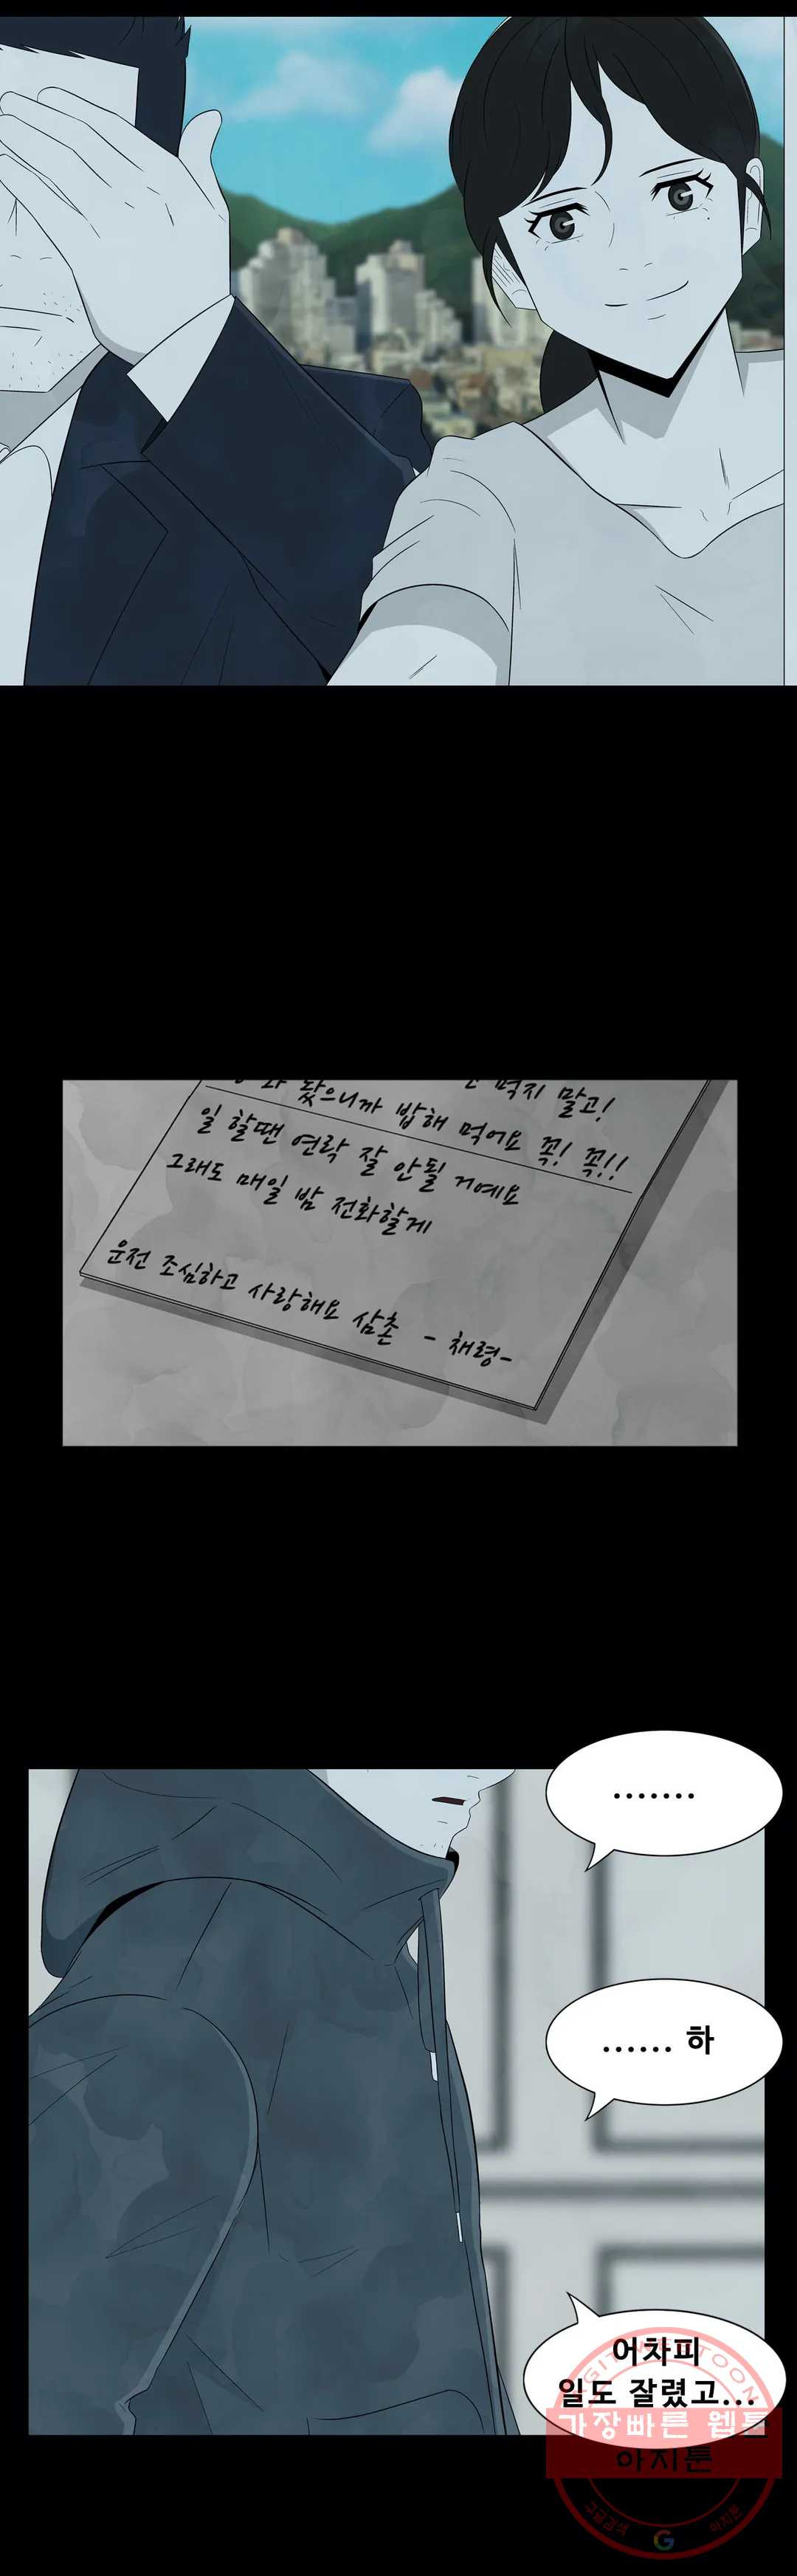 먹지 말고!
놨으니까 밥해 먹어요 꼭! 꼭!!
일 할땐 연락 잘 안될 거예요
그래도 매일 밤 전화할게
운전 조심하고 사랑해요 삼촌 - 채령-
.......
...... 하
어차피
일도 잘렸고...
AGIT WEBTOON
가장빠른 웹툰
아지툰
구글검색 G 아지툰